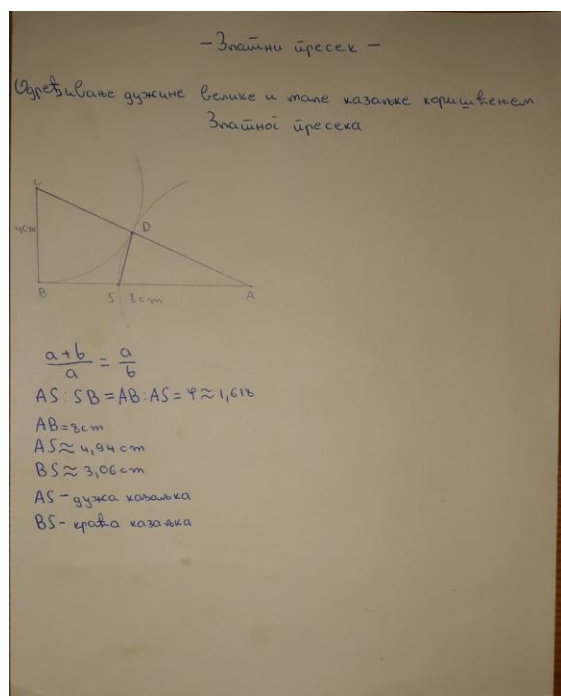 - Златни пресек -
Одређивање дужине велике и мале казаљке коришћењем
Златног пресека
C
4cm
D
B
S
8cm
A
a+b/a = a/b
AS:SB=AB:AS=φ≈1,618
AB=8cm
AS≈4,94cm
BS≈3,06cm
AS-дужа казаљка
BS-краћа казаљка